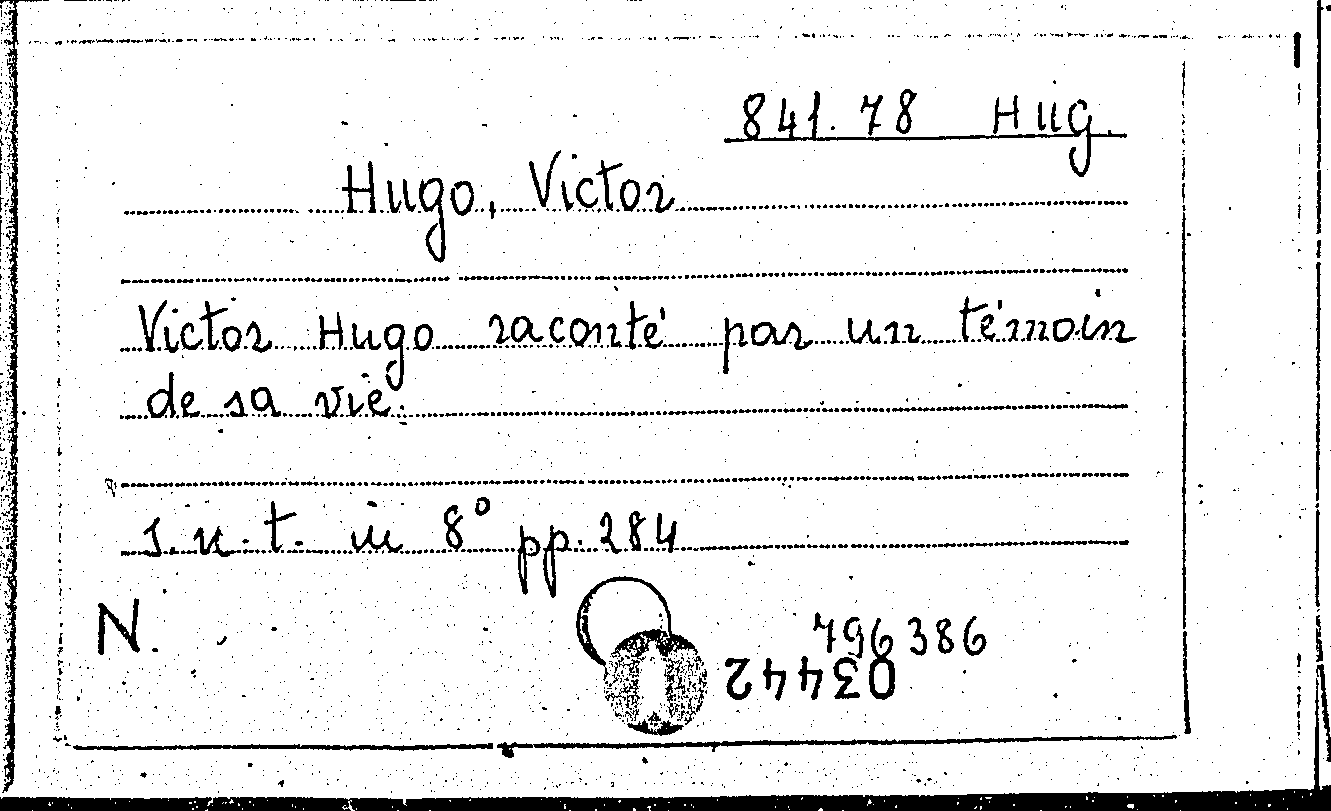 841.78 Hug.
Hugo, Victor
Victor Hugo raconté par un témoin
de sa vie.
s.n.t. in 8° pp. 284
N.
796386
03442